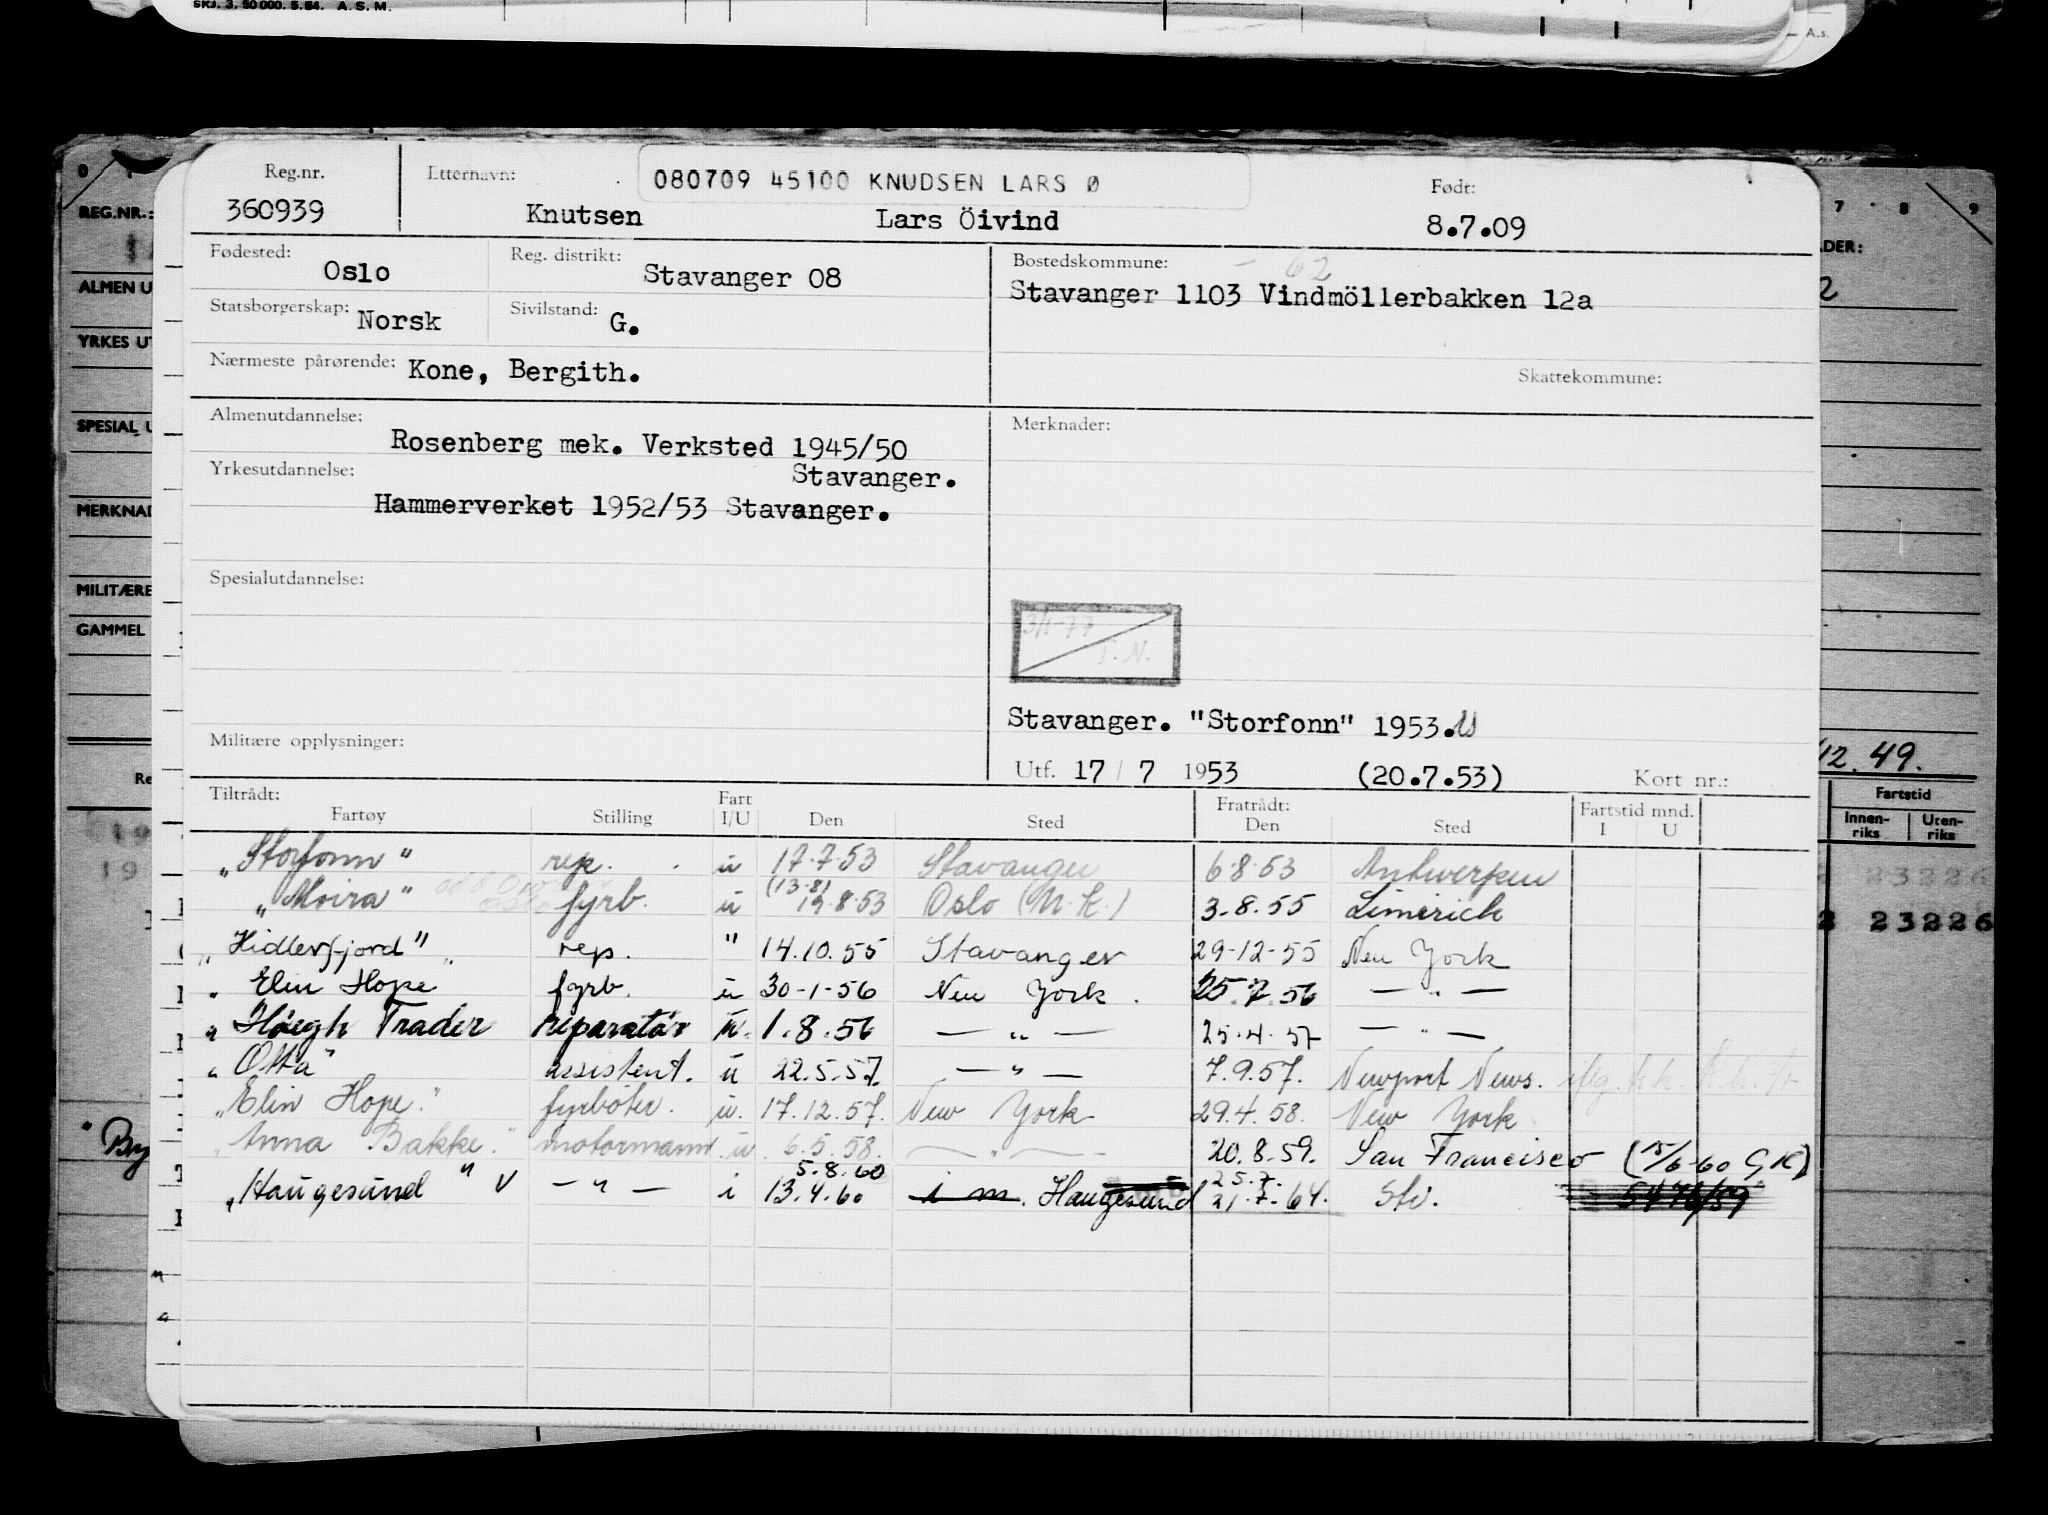 SKJ. 3. 50 000. 5. 54. A. S. M.
A.s.
Reg.nr. Etternavn: 080709 45100 KNUDSEN LARS Ø Født:
360939 Knutsen Lars Öivind 8.7.09
Fødested: Oslo Reg. distrikt: Stavanger 08 Bostedskommune: - 62
Stavanger 1103 Vindmöllerbakken 12a
Statsborgerskap: Norsk Sivilstand: G.
Nærmeste pårørende: Kone, Bergith. Skattekommune:
Almenutdannelse: Merknader:
Rosenberg mek. Verksted 1945/50
Yrkesutdannelse: Stavanger.
Hammerverket 1952/53 Stavanger.
Spesialutdannelse:
3/1-77
T. N.
Stavanger. "Storfonn" 1953. U
Militære opplysninger: Utf. 17 / 7 1953 (20.7.53) Kort nr.:
Tiltrådt: Fart Fratrådt: Fartstid mnd.
Fartøy Stilling I/U Den Sted Den Sted I U
"Storfonn" rep. u 17.7.53 Stavanger 6.8.53 Antwerpen
"Moira" fyrb. u (13.8) 19.8.53 Oslo (N.K.) 3.8.55 Limerich
"Hidlefjord" rep. " 14.10.55 Stavanger 29-12-55 New York
" Elin Hope fyrb. u 30-1-56 New York. 25.7.56 — " —
" Höegh Trader reparatør u. 1.8.56 — " — 25.4.57 — " —
"Otta" assistent. u 22.5.57. — " — 7.9.57. Newport News.
"Elin Hope." fyrbøter. u. 17.12.57. New York 29.4.58. New York
"Anna Bakke." motormann u. 6.5.58. — " — 20.8.59. San Francisco (15/6-60 GK)
5.8.60 25.7.
"Haugesund" V — " — i 13.4.60 i m. Haugesund 21.7.64. Sti. 5476/59
REG.NR.:
ALMEN U
YRKES UT
SPESIAL U
MERKNAD
MILITÆRE
GAMMEL
Re
19
19
" Bry
7 8 9
DER:
2
12.49.
Fartstid
Innen-riks Uten-riks
23226
2 23226